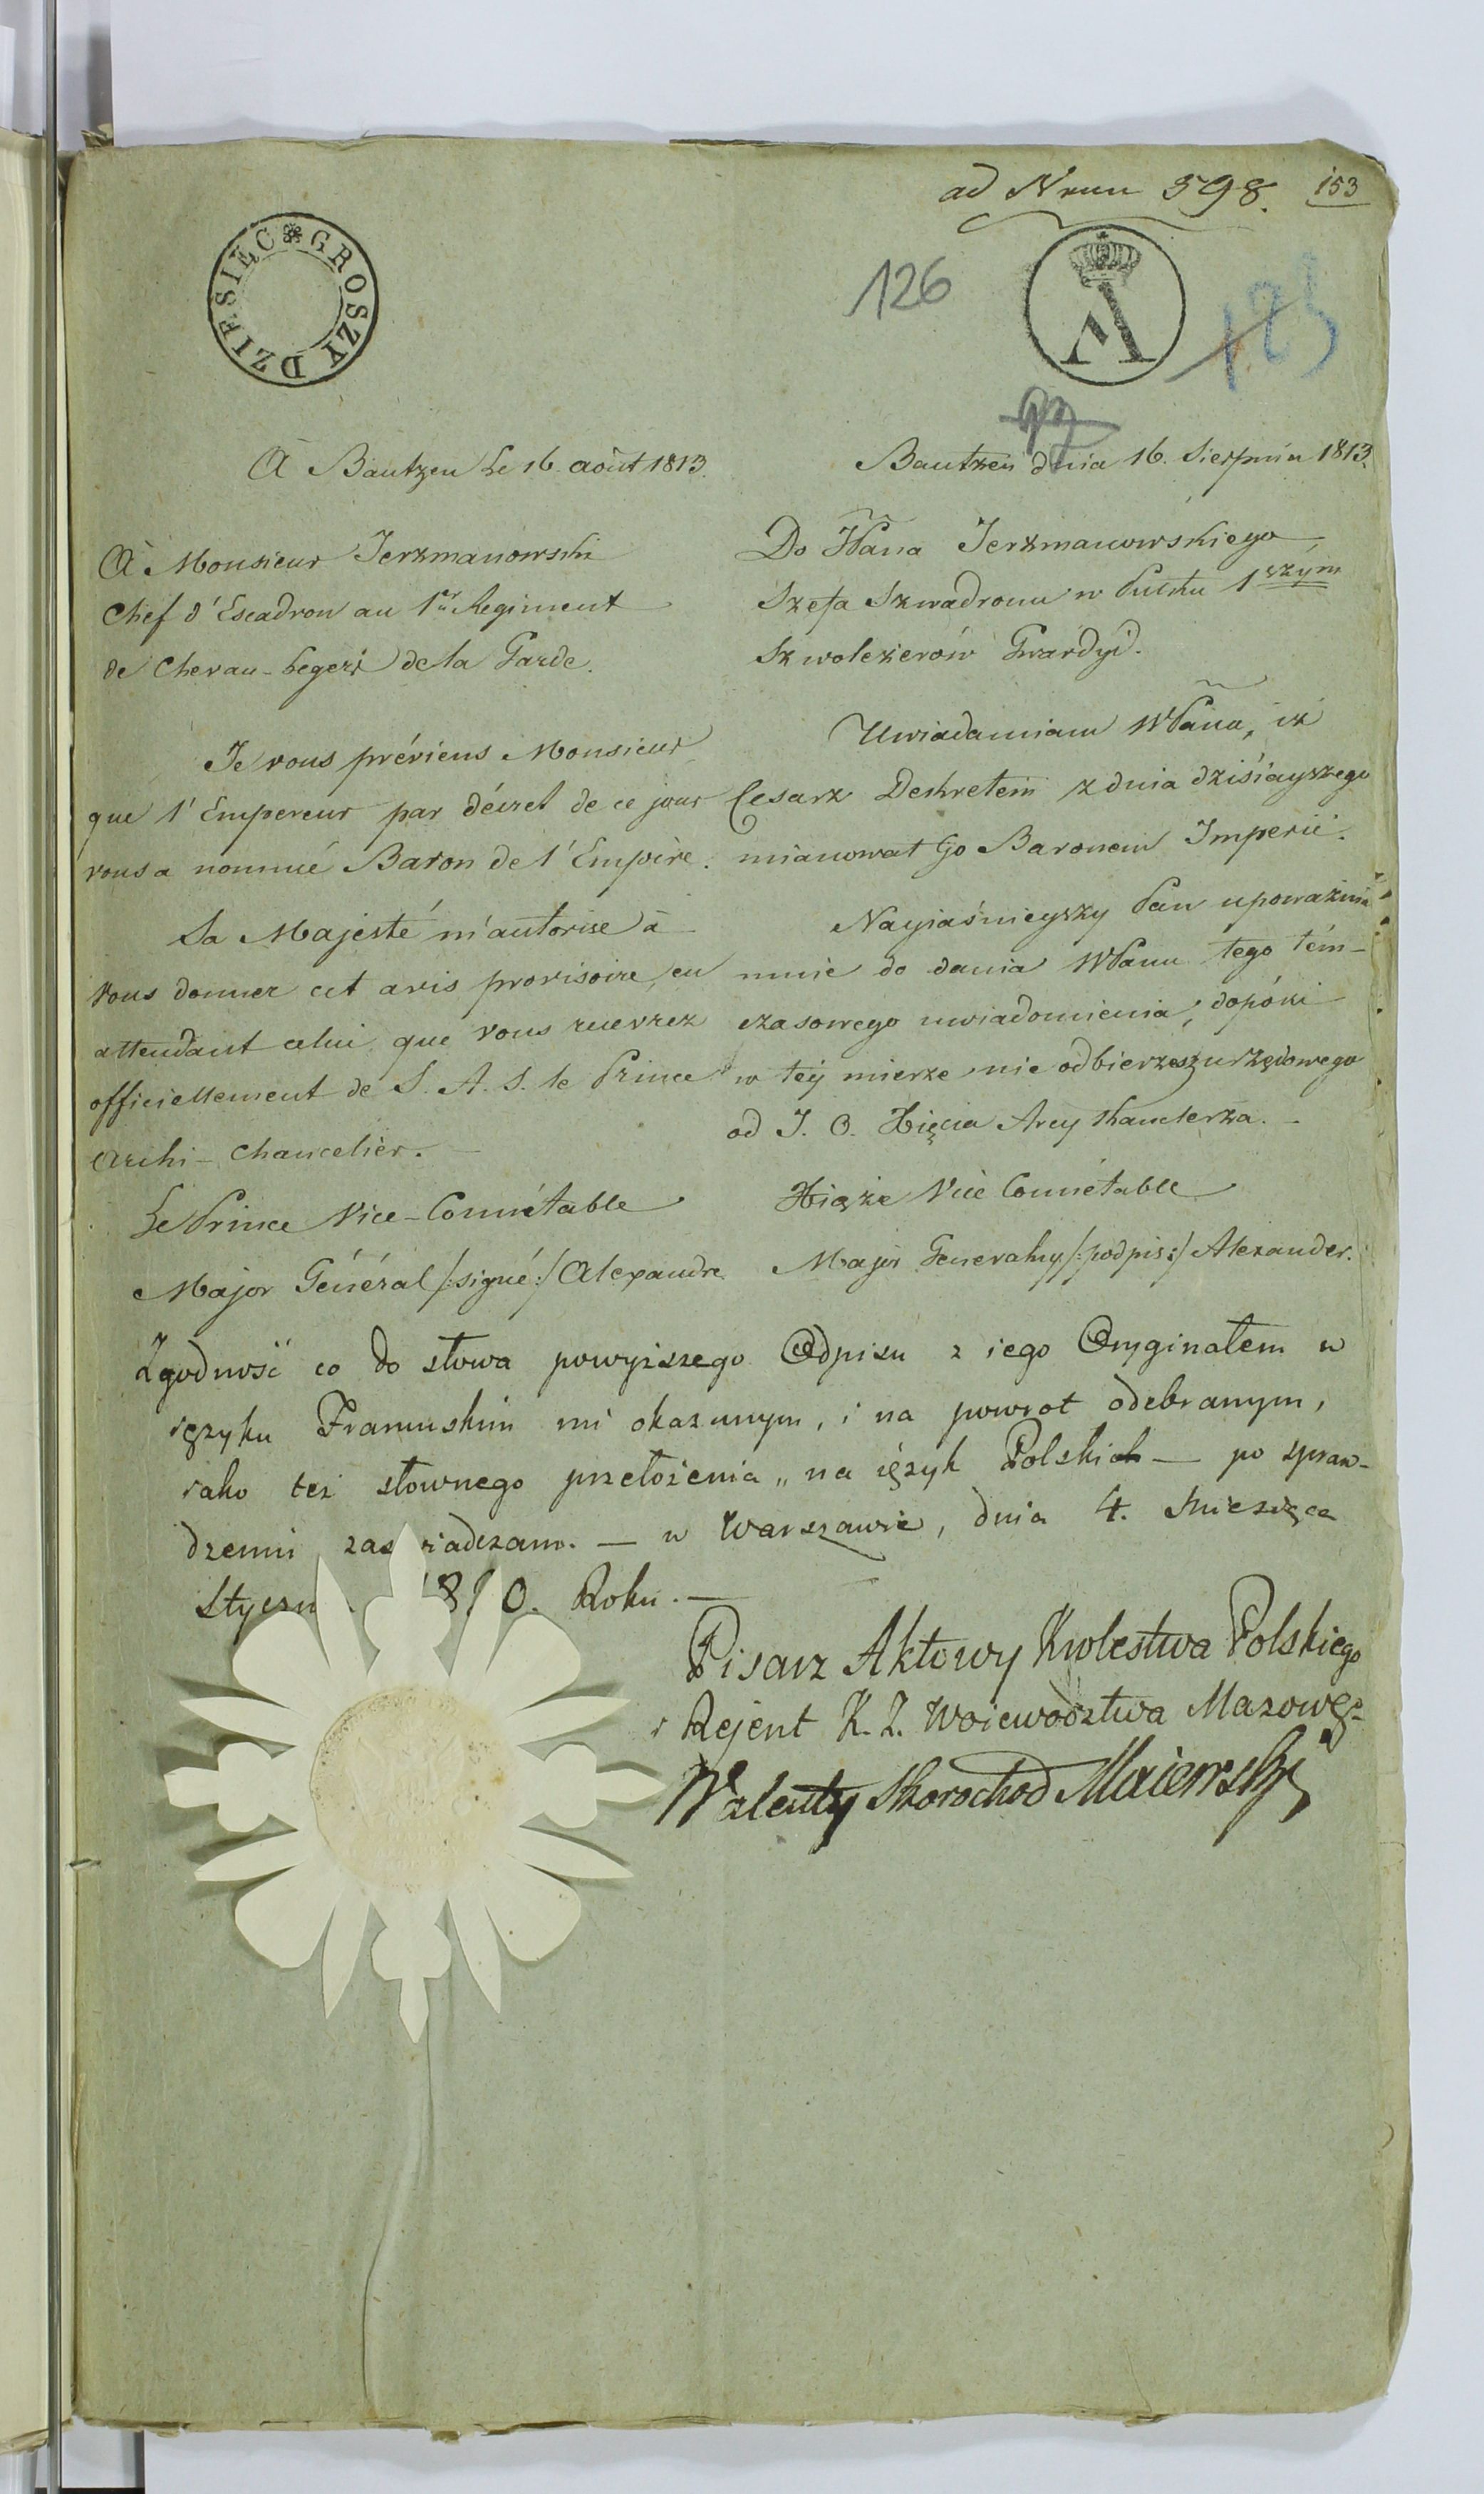 ad Nrum 598. 153
DZIESIĘC GROSZY
126
A
125
À Bautzen Le 16. août 1813.
À Monsieur Jerzmanowski
Chef d'Escadron au 1er Regiment
de Chevau-Legers de la Garde.
Je vous préviens Monsieur
que l'Empereur par décret de ce jour
vous a nommé Baron de l'Empire.
Sa Majesté m'autorise à
vous donner cet avis provisoire, en
attendant celui que vous recevrez
officiellement de S. A. S. le Prince
Archi-Chancelier.
Le Prince Vice-Connétable
Major Général /:signé:/ Alexandre
Bautzen dnia 16. Sierpnia 1813.
Do WPana Jerzmanowskiego
Szefa Szwadronu w Pułku 1szym
Szwoleżerów Gwardyi.
Uwiadamiam WPana, iż
Cesarz Dekretem z dnia dzisiayszego
mianował Go Baronem Imperii.
Nayiaśnieyszy Pan upoważnia
mnie do dania WPanu tego tém-
czasowego uwiadomienia, dopóki
w téy mierze nie odbierzesz urzędowego
od J. O. Xięcia Arcy Kanclerza.
Xiąże Vice Connétable
Major Generalny /:podpis:/ Alexander.
Zgodność co do słowa powyższego Odpisu z iego Oryginałem w
ięzyku Francuskim mi okazanym, i na powrot odebranym,
iako też słownego przełożenia „ na ięzyk Polski — po spraw-
dzeniu zaświadczam. — w Warszawie, dnia 4. Miesiąca
Styczn 1820. Roku. —
Pisarz Aktowy Krolestwa Polskiego
i Rejent K. Z. Woiewodztwa Mazowę-
Walenty Skorochod Maiewski